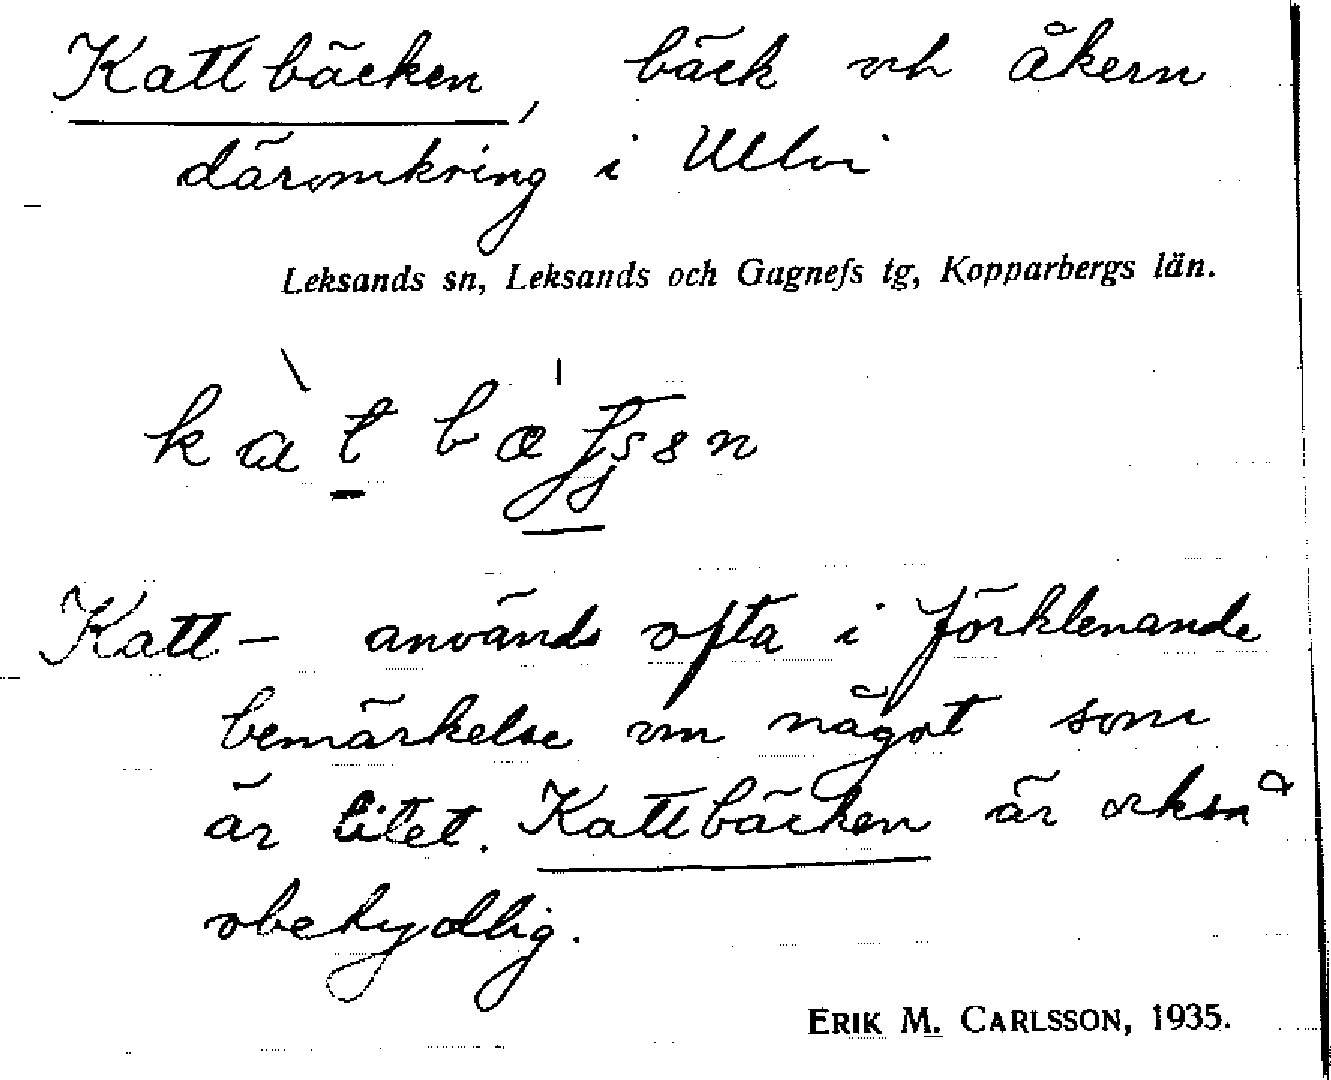 Kattbäcken, bäck och åkern
däromkring i Ullvi
Leksands sn, Leksands och Gagnefs tg, Kopparbergs län.
Katt- används ofta i förklenande
bemärkelse om något som
är litet. Kattbäcken är också
obetydlig.
ERIK M. CARLSSON, 1935.